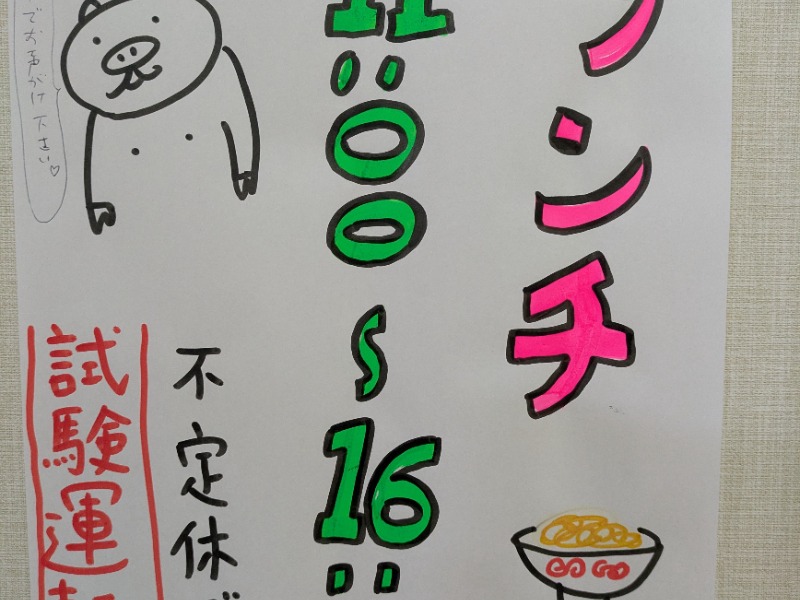 ンチ
11:00~16:
不定休
試験運
でお声がけ下さい♡